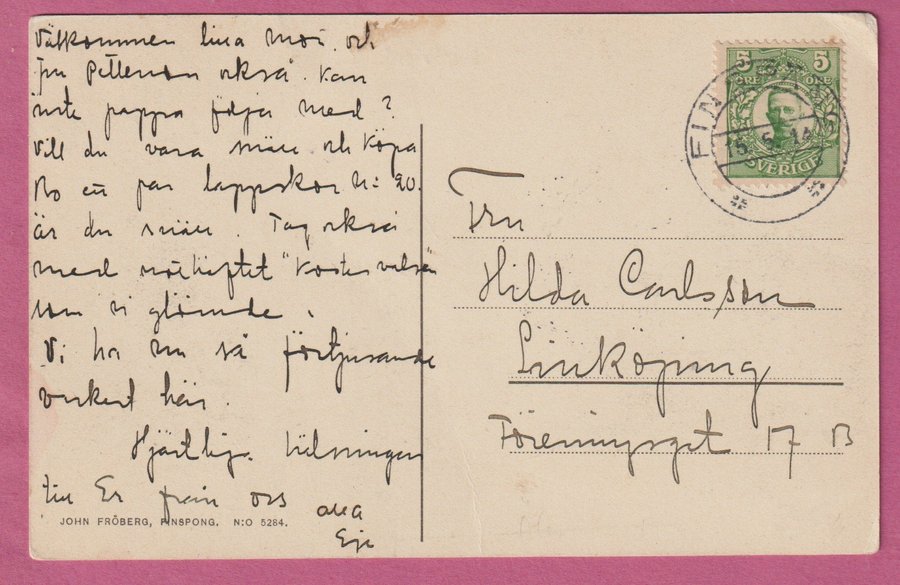 Välkommen lilla mor och
fru Petterson också. Kan
inte pappa följa med?
Vill du vara snäll och köpa
ett par lappskor N: 20.
är du snäll. Tag också
med nothäftet "Kostervalsen
som vi glömde.
Vi ha nu så förtjusande
vackert här.
Hjärtliga hälsningar
till Er från oss alla
Eje
JOHN FRÖBERG, FINSPONG. N:O 5284.
5 5
ÖRE ÖRE
SVERIGE
15. 6. 14
Fru
Hilda Carlsson
Linköping
Föreningsgat 17 B